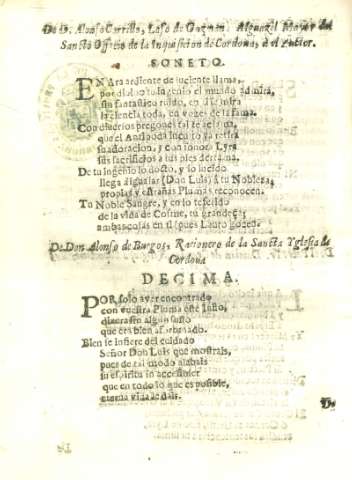 De D. Alonso Carrillo, Laso de Guzman, Alguazil Mayor del
Sancto Officio de la Inquisicion de Cordoua, a el Autor.
SONETO.
EN ara ardiente de luciente llama,
por docto tu ingenio el mundo admira,
sin fantastico ruido, en
la ciencia toda, en vozes de la fama.
Con diuersos pregones
que el Antipoda
su adoracion, y con sonoro Lyra
sus sacrificios a tus pies derrama.
De tu ingenio lo docto, y lo lucido
llega a igualar (Don Luis) a tu Nobleza;
propias, y estrañas Plumas reconocen.
Tu Noble Sangre, y en lo
de la vida de Cosme, tu grandeza;
ambas cosas en ti
De Don Alonso de Burgos, Racionero de la Sancta Yglesia de
Cordoua
DECIMA.
POR solo auer encontrado
con vuestra Pluma este Santo,
que era bien afortunado.
Bien se infiere del cuidado
Señor Don Luis que mostrais,
pues de tal modo alabais
su espiritu
que en todo lo que es posible,
nueua vida le dais.
De